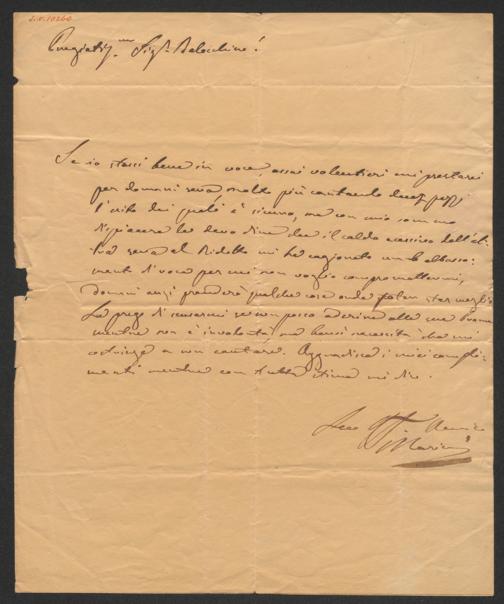 I.N. 10260
Pregiatis.mo Sig.r Balochino!
Se io stassi bene in voce, assai volentieri mi prestarei
per domani sera, molto più cantando due pezzi
l'esito dei quali è sicuro, ma con mio sommo
dispiacere le devo dire che il caldo eccessivo dell'al-
tra sera al Ridotto mi ha cagionato un abbassa-
mento di voce per cui non voglio compromettermi,
domani anzi prenderò qualche cosa onde poter star meglio
La prego di scusarmi se non posso aderire alla sua
mentre non è involontà ma bensì necessità che mi
costringe a non cantare. Aggradisca i miei compli-
menti mentre con tutta stima mi dico.
Suo Amico